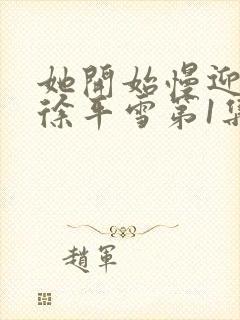 她開始慢迎
徐平雪第1集
趙軍